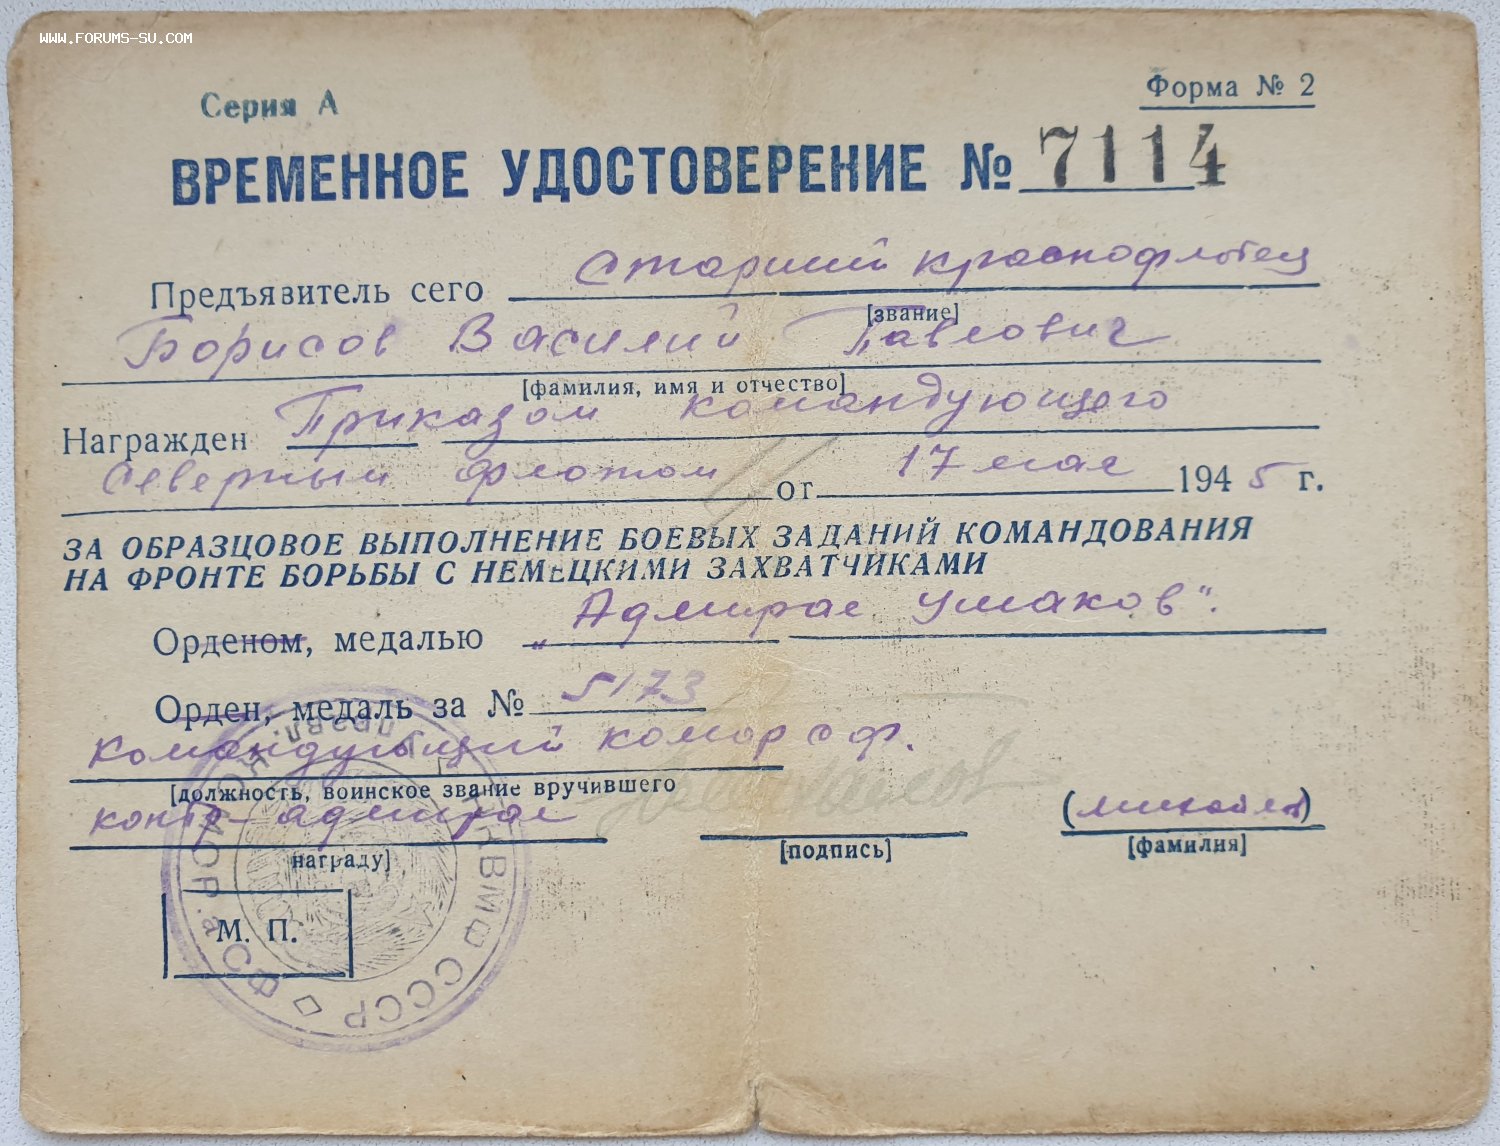 WWW.FORUMS-SU.COM
Серия А
Форма № 2
ВРЕМЕННОЕ УДОСТОВЕРЕНИЕ № 7114
Предъявитель сего старший краснофлотец
[звание]
Борисов Василий Павлович
[фамилия, имя и отчество]
Награжден Приказом командующего
Северным флотом от 17 мая 1945 г.
ЗА ОБРАЗЦОВОЕ ВЫПОЛНЕНИЕ БОЕВЫХ ЗАДАНИЙ КОМАНДОВАНИЯ
НА ФРОНТЕ БОРЬБЫ С НЕМЕЦКИМИ ЗАХВАТЧИКАМИ
Орденом, медалью „Адмирал Ушаков".
Орден, медаль за № 5173
командующий комор сф.
[должность, воинское звание вручившего
контр-адмирал (Михайлов)
награду] [подпись] [фамилия]
М. П.
НКВМФ СССР